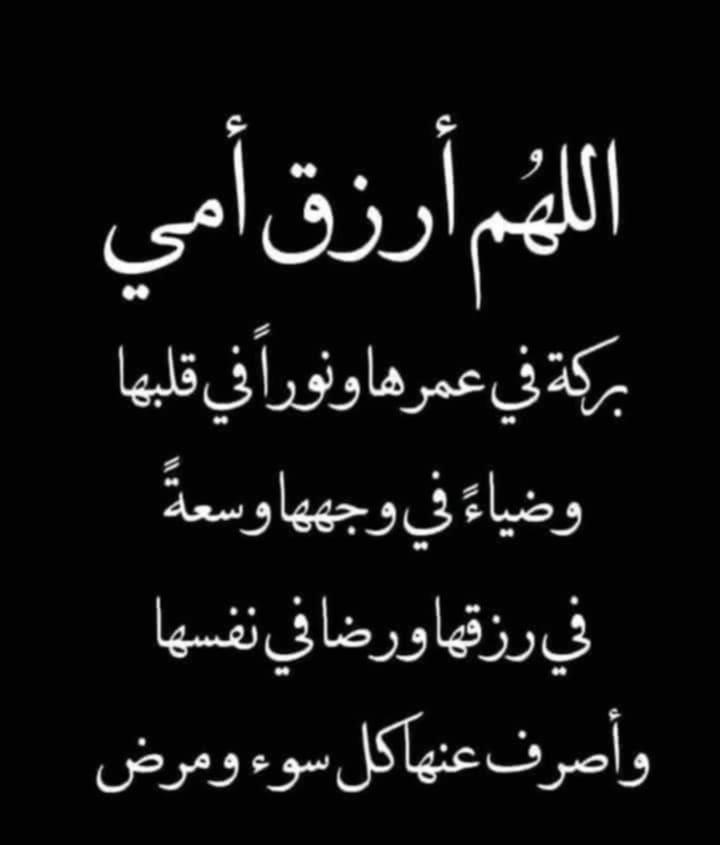 اللهُم أرزق أمي
بركة في عمرها ونوراً في قلبها
وضياءً في وجهها وسعةً
في رزقها ورضا في نفسها
وأصرف عنها كل سوء ومرض